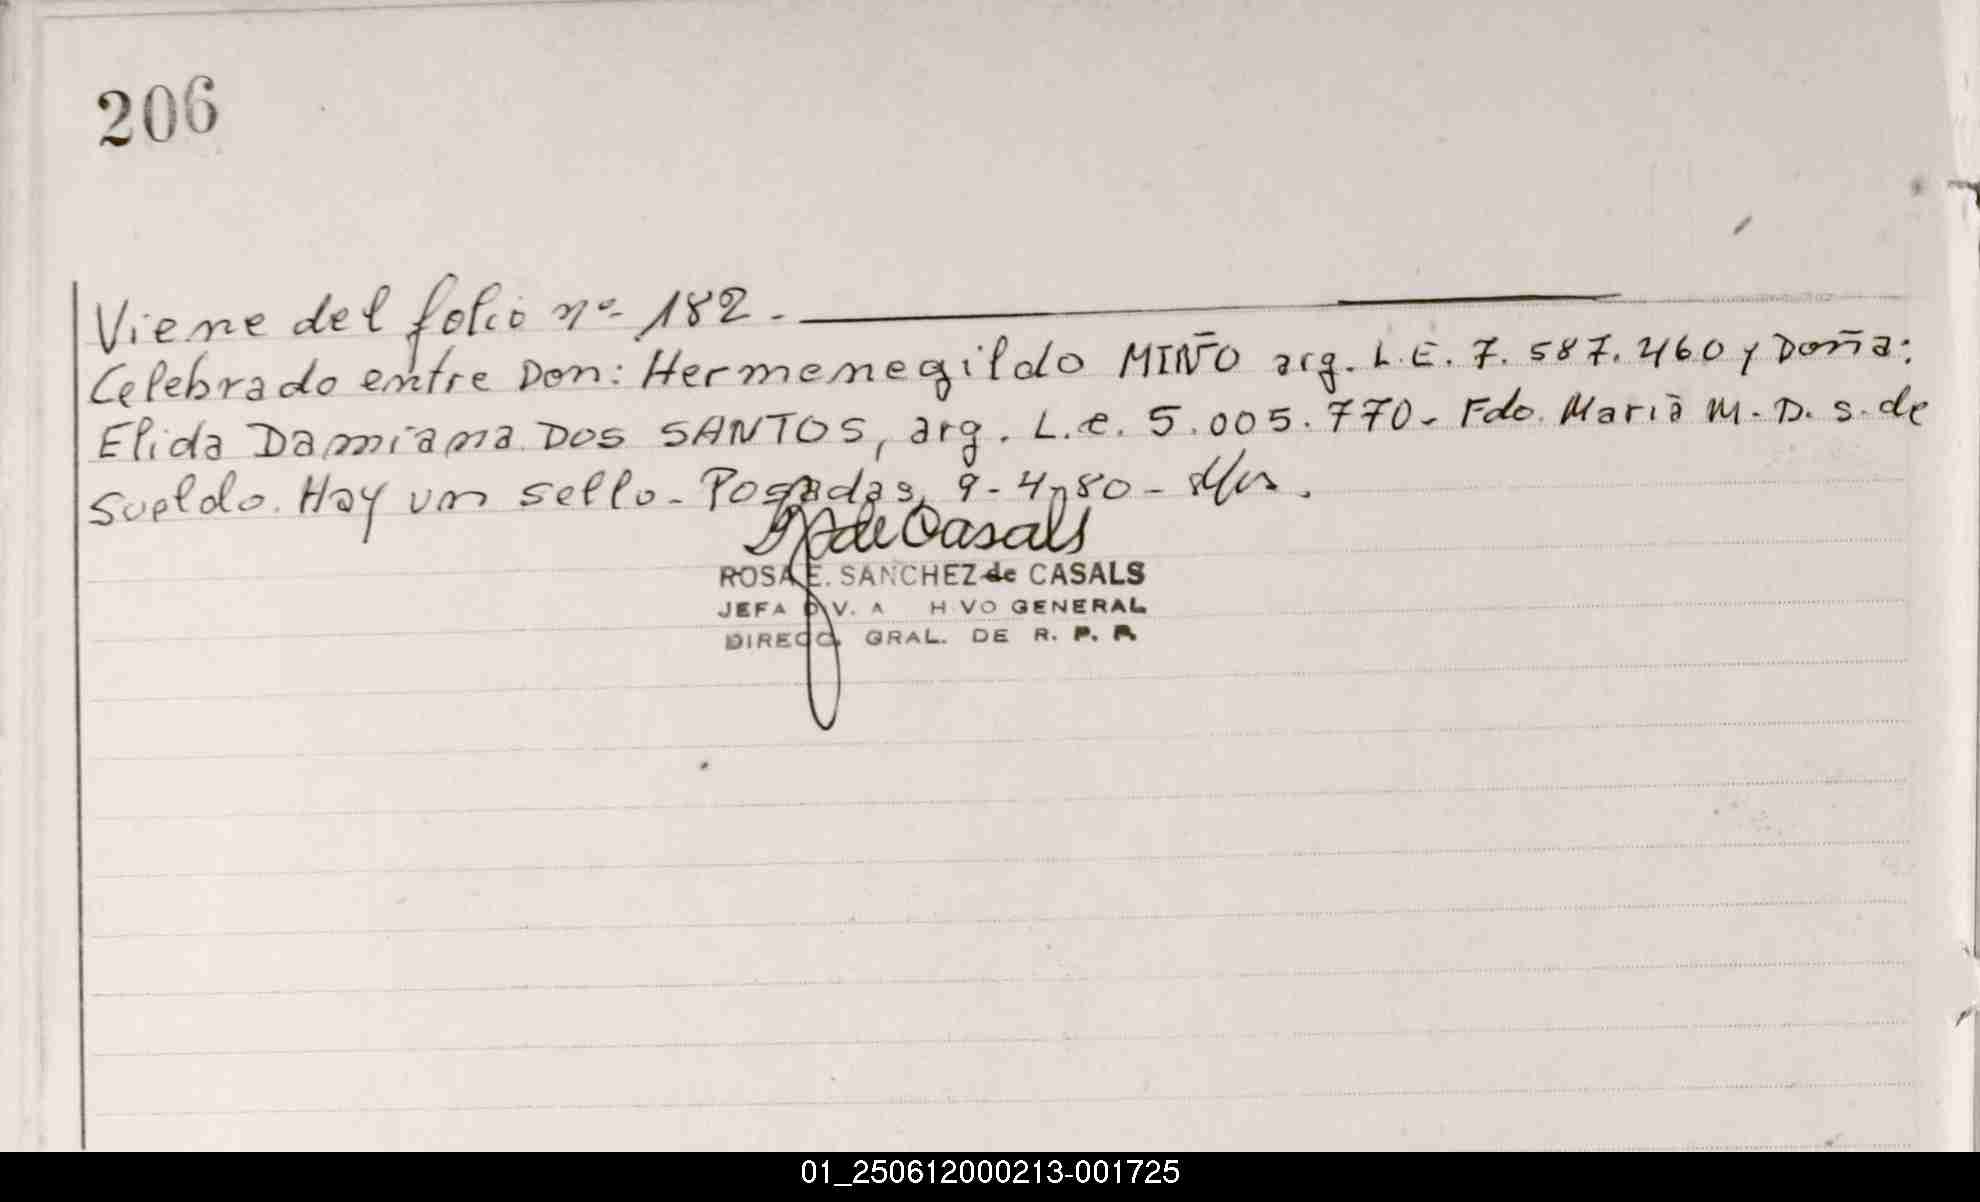 206
Viene del folio nº 182.-
Celebrado entre Don: Hermenegildo MIÑO arg. L.E. 7.587.460 y Doña:
Elida Damiana Dos SANTOS, arg. L.e. 5.005.770- Fdo. Maria M. D. s. de
Sueldo. Hay un sello- Posadas, 9-4-80-
de Casals
ROSA E. SANCHEZ de CASALS
JEFA DIV. A HIVO GENERAL
DIRECC. GRAL. DE R. P. P.
01_250612000213-001725